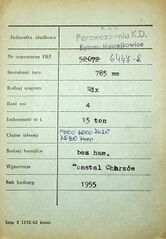 Jednostka służbowa
Parowozownia K.D.
Bytom Maciejkowice
Nr inwentarza PKP
6447-S
Szerokość toru 785 mm
Rodzaj wagonu Wdx
Ilość osi 4
Ładowność w t. 15 ton
Ciężar własny
Rodzaj hamulca bez ham.
Wytwórnia Konstal Chorzów
Rok budowy 1955